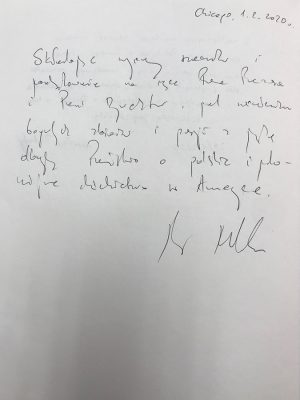 Chicago, 1.2.2020r.
Składając wyrazy szacunku i
podziękowania na ręce Pana Prezesa
i Pani Dyrektor, pod wrażeniem
bogatych zbiorów i pasji z jaką
dbają Państwo o polskie i polo-
nijne dziedzictwo w Ameryce.